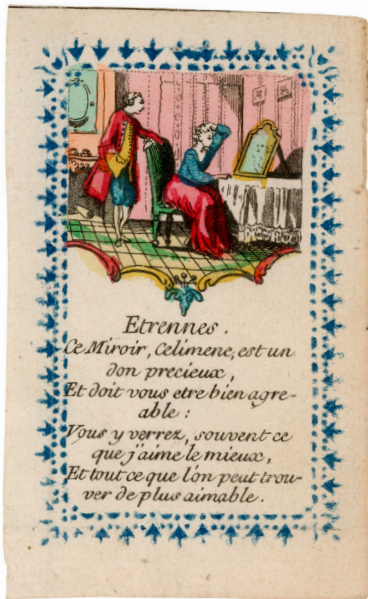 Etrennes.
Ce Miroir, Celimene, est un
don precieux,
Et doit vous etre bien agre-
able :
Vous y verrez, souvent ce
que j'aime le mieux,
Et tout ce que l'on peut trou-
ver de plus aimable.